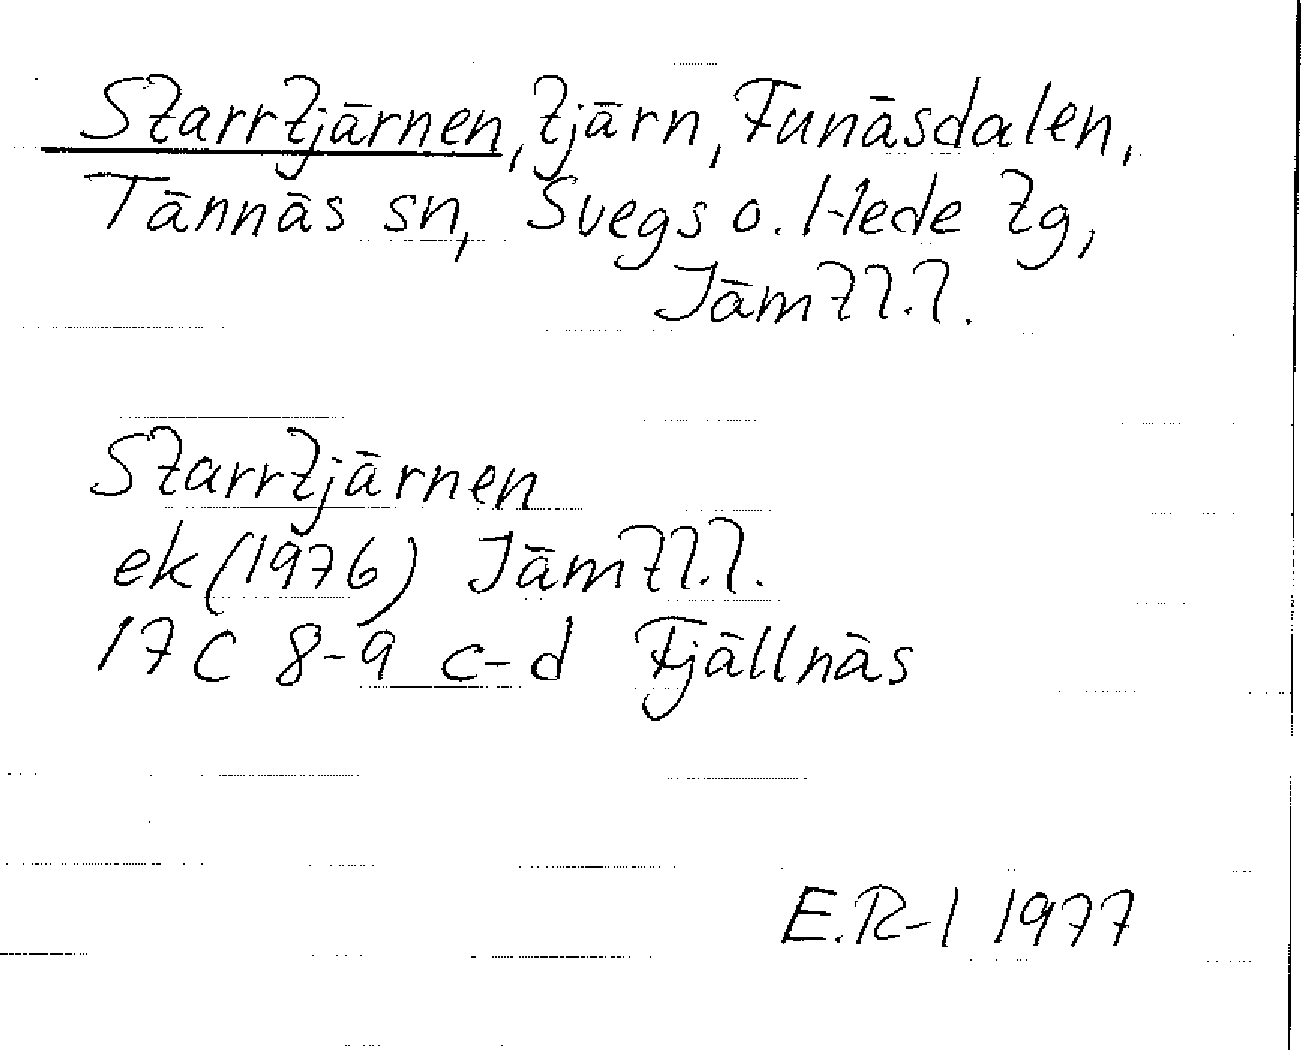 Starrtjärnen, tjärn, Funäsdalen,
Tännäs sn, Svegs o. Hede tg,
Jämtl.l.
Starrtjärnen
ek (1976) Jämtl.l.
17C 8-9 c-d Fjällnäs
E.R-l 1977